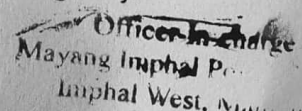 Officer-In-Charge
Mayang Imphal
Imphal West,